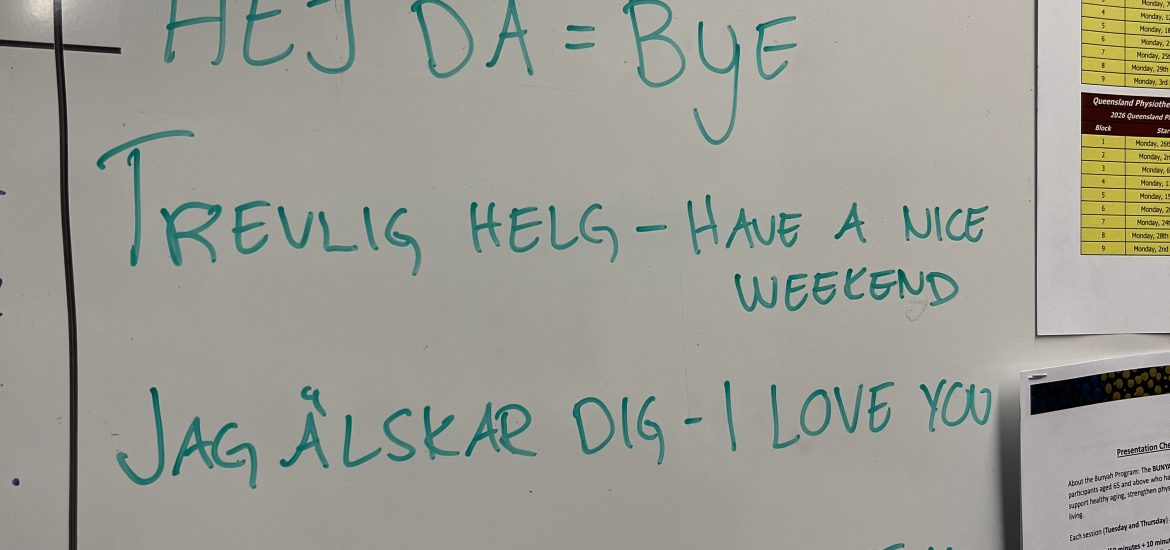 HEJ DA = BYE
TREVLIG HELG - HAVE A NICE
WEEKEND
JAG ÅLSKAR DIG - I LOVE YOU
4 Monday, 12
5 Monday, 16
6 Monday, 2
7 Monday, 25
8 Monday, 29th
9 Monday, 3rd
Queensland
2026 Queensland
Block
1 Monday, 26
2 Monday, 2n
3 Monday, 6
4 Monday, 1
5 Monday, 15
6 Monday, 2
7 Monday, 24
8 Monday, 28th
9 Monday, 2nd
Presentation
About the Bunyah Program: The
participants aged 65 and above who
support healthy aging, strengthen
living.
Each session (Tuesday and Thursday)
minutes + 10